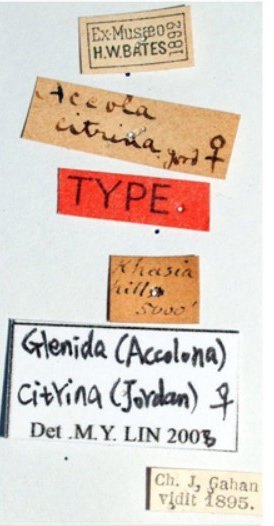 Ex-Musæo
H.W.BATES
1892
Accola
citrina
Jord ♀
TYPE.
Khasia
hills
5000'
Glenida (Accolona)
citrina (Jordan) ♀
Det .M.Y. LIN 2003
Ch. J, Gahan
vidit 1895.